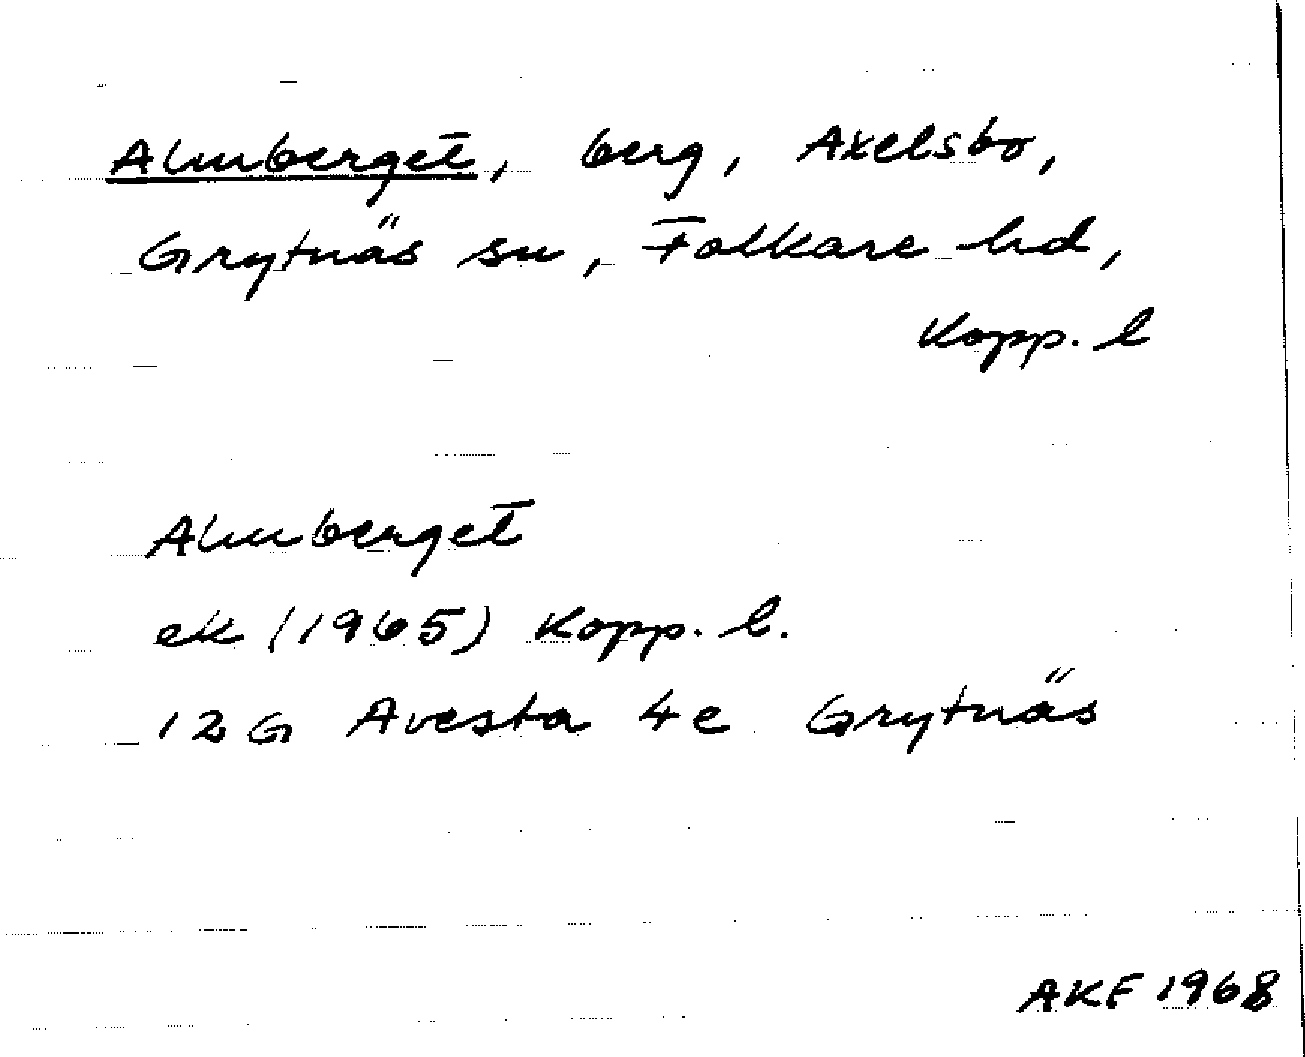 Almberget, berg, Axelsbo,
Grytnäs sn, Folkare hd,
Kopp. l
Almberget
ek (1965) Kopp. l.
12 G Avesta 4 e Grytnäs
AKF 1968